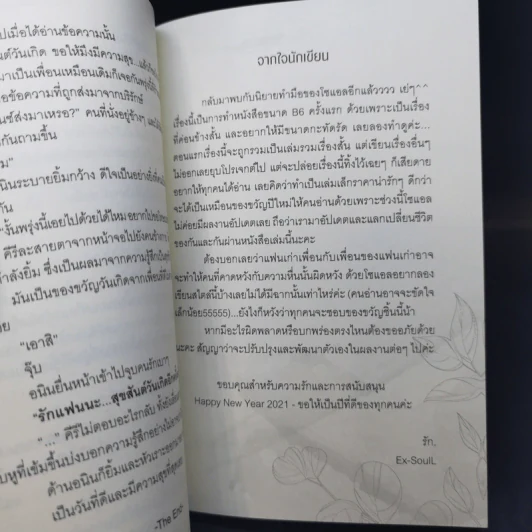 ปเมื่อได้อ่านข้อความนั้น
นต์วันเกิด ขอให้มึงมีความสุข...
มาเป็นเพื่อนเหมือนเดิมก็เจอกันพรุ่งนี้
อข้อความที่ถูกส่งมาจากบริรักษ์
นซ์ส่งมาเหรอ?" คนที่นั่งอยู่ข้างๆ
กันถามขึ้น
ม"
นินระบายยิ้มกว้าง ดีใจเป็นอย่างยิ่ง
กัน
"งั้นพรุ่งนี้เอยไปด้วยได้ไหม
คีรีละสายตาจากหน้าจอไปยังคน
ำลังยิ้ม ซึ่งเป็นผลมาจากความรู้สึก
มันเป็นของขวัญวันเกิดจากเพื่อน
อย
"เอาสิ"
จุ๊บ
อนินยื่นหน้าเข้าไปจุบคนรักเบาๆ
"รักแฟนนะ...สุขสันต์วันเกิด
"..." คีรีไม่ตอบอะไรกลับ
หูที่เข้มขึ้นบ่งบอกความรู้สึกอย่าง
ด้านอนินก็ยิ้มและหัวเราะ
เป็นวันที่ดีและมีความสุขที่สุด
-The End-
จากใจนักเขียน
กลับมาพบกับนิยายทำมือของโซแอลอีกแล้วววว เย่ๆ^^
เรื่องนี้เป็นการทำหนังสือขนาด B6 ครั้งแรก ด้วยเพราะเป็นเรื่อง
ที่ค่อนข้างสั้น และอยากให้มีขนาดกะทัดรัด เลยลองทำดูค่ะ...
ตอนแรกเรื่องนี้จะถูกรวมเป็นเล่มรวมเรื่องสั้น แต่เขียนเรื่องอื่นๆ
ไม่ออกเลยยุบโปรเจกต์ไป แต่จะปล่อยเรื่องนี้ทิ้งไว้เฉยๆ ก็เสียดาย
อยากให้ทุกคนได้อ่าน เลยคิดว่าทำเป็นเล่มเล็กราคาน่ารักๆ ดีกว่า
จะได้เป็นเหมือนของขวัญปีใหม่ให้คนอ่านด้วยเพราะช่วงนี้โซแอล
ไม่ค่อยมีผลงานอัปเดตเลย ถือว่าเรามาอัปเดตและแลกเปลี่ยนชีวิต
ของกันและกันผ่านหนังสือเล่มนี้นะคะ
ต้องบอกเลยว่าแฟนเก่าเพื่อนกับเพื่อนของแฟนเก่าอาจ
จะทำให้คนที่คาดหวังกับความหื่นนั้นผิดหวัง ด้วยโซแอลอยากลอง
เขียนสไตล์นี้บ้างเลยไม่ได้มีฉากนั้นเท่าไหร่ค่ะ (คนอ่านอาจจะขัดใจ
เล็กน้อย55555)...ยังไงก็หวังว่าทุกคนจะชอบของขวัญชิ้นนี้น้า
หากมีอะไรผิดพลาดหรือบกพร่องตรงไหนต้องขออภัยด้วย
นะคะ สัญญาว่าจะปรับปรุงและพัฒนาตัวเองในผลงานต่อๆ ไปค่ะ
ขอบคุณสำหรับความรักและการสนับสนุน
Happy New Year 2021 - ขอให้เป็นปีที่ดีของทุกคนค่ะ
รัก,
Ex-SoulL